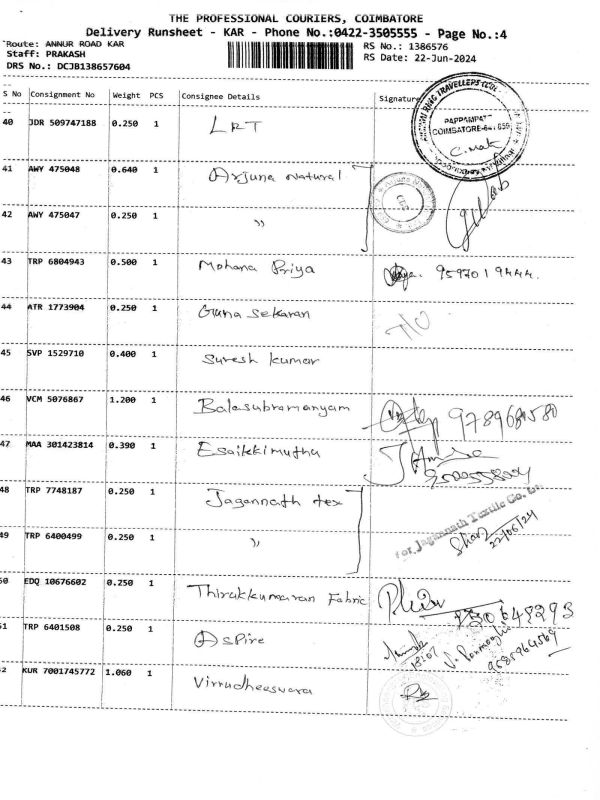 THE PROFESSIONAL COURIERS, COIMBATORE
Delivery Runsheet - KAR - Phone No.:0422-3505555 - Page No.:4
Route: ANNUR ROAD KAR
Staff: PRAKASH
DRS No.: DCJB138657604
RS No.: 1386576
RS Date: 22-Jun-2024
S No Consignment No Weight PCS Consignee Details Signature
40 JDR 509747188 0.250 1 LRT
PAPPAMPATTI
COIMBATORE-641 659
41 AWY 475048 0.640 1 Arjuna Natural
42 AWY 475047 0.250 1 ,,
43 TRP 6804943 0.500 1 Mohana Priya 9597019444.
44 ATR 1773904 0.250 1 Guna Sekaran
45 SVP 1529710 0.400 1 Suresh kumar
46 VCM 5076867 1.200 1 Balasubramanyam
47 MAA 301423814 0.390 1 Esaikkimuthu
48 TRP 7748187 0.250 1 Jagannath tex
For Jagannath Textile Co.
22/06/24
49 TRP 6400499 0.250 1 ,,
50 EDQ 10676602 0.250 1 Thirukkumaran Fabric
51 TRP 6401508 0.250 1 Aspire
52 KUR 7001745772 1.060 1 Virrudheeswara